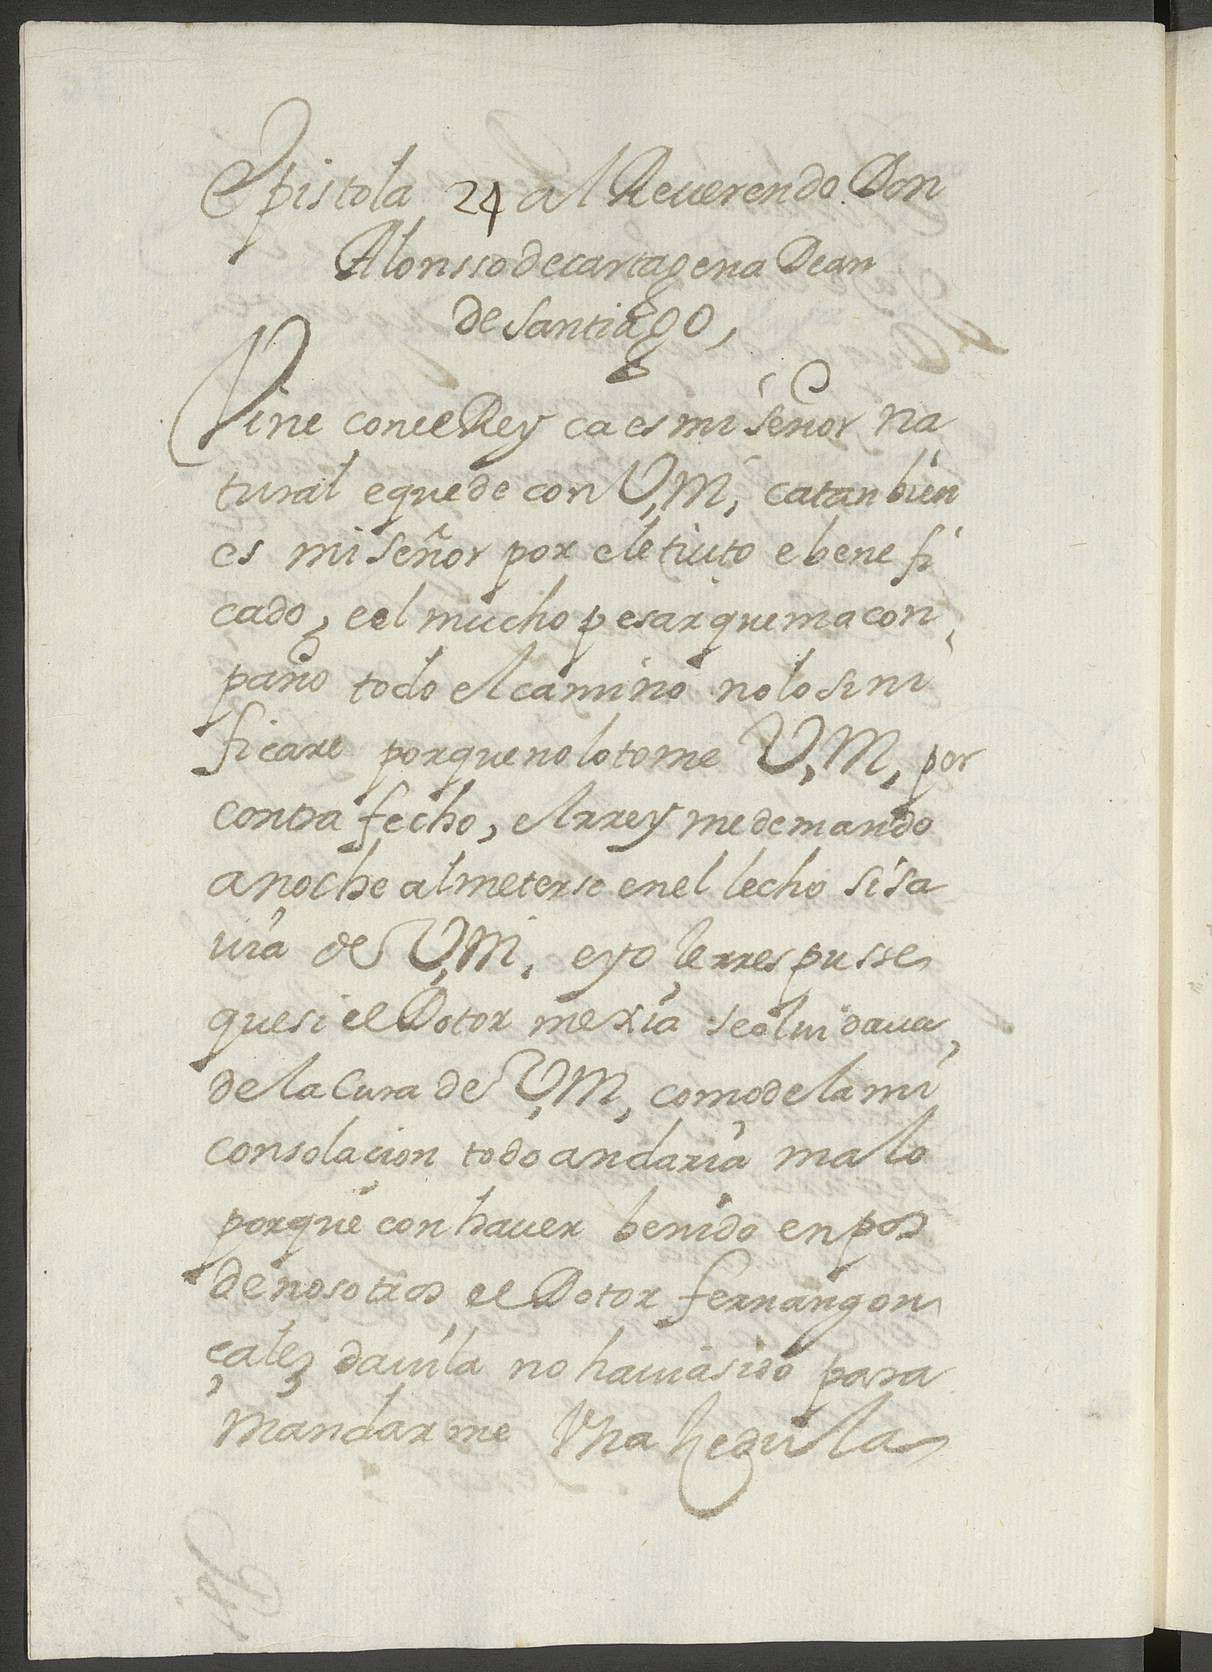 Epistola 24 al Reuerendo Don
Alonsso de cartagena Dean
de Santiago,
Vine con el Rey ca es mi señor na
tural e quede con V,M, ca tanbien
es mi señor por ele tiuto e benefi
cado, e el mucho pesar que ma con,
paño todo el camino no lo sini
ficare porque no lo tome V,M, por
contra fecho, el rrey me demando
a noche al meterse en el lecho si sa
uia de V,M, e yo le rrespusse
que si el Dotor mexia se oluidaua,
de la Cura de V,M, como de la mi
consolacion todo andaria malo
porque con hauer benido en pos
de nosotros el Dotor fernan gon
çalez dauila no hauia sido para
mandar me Vna hedula